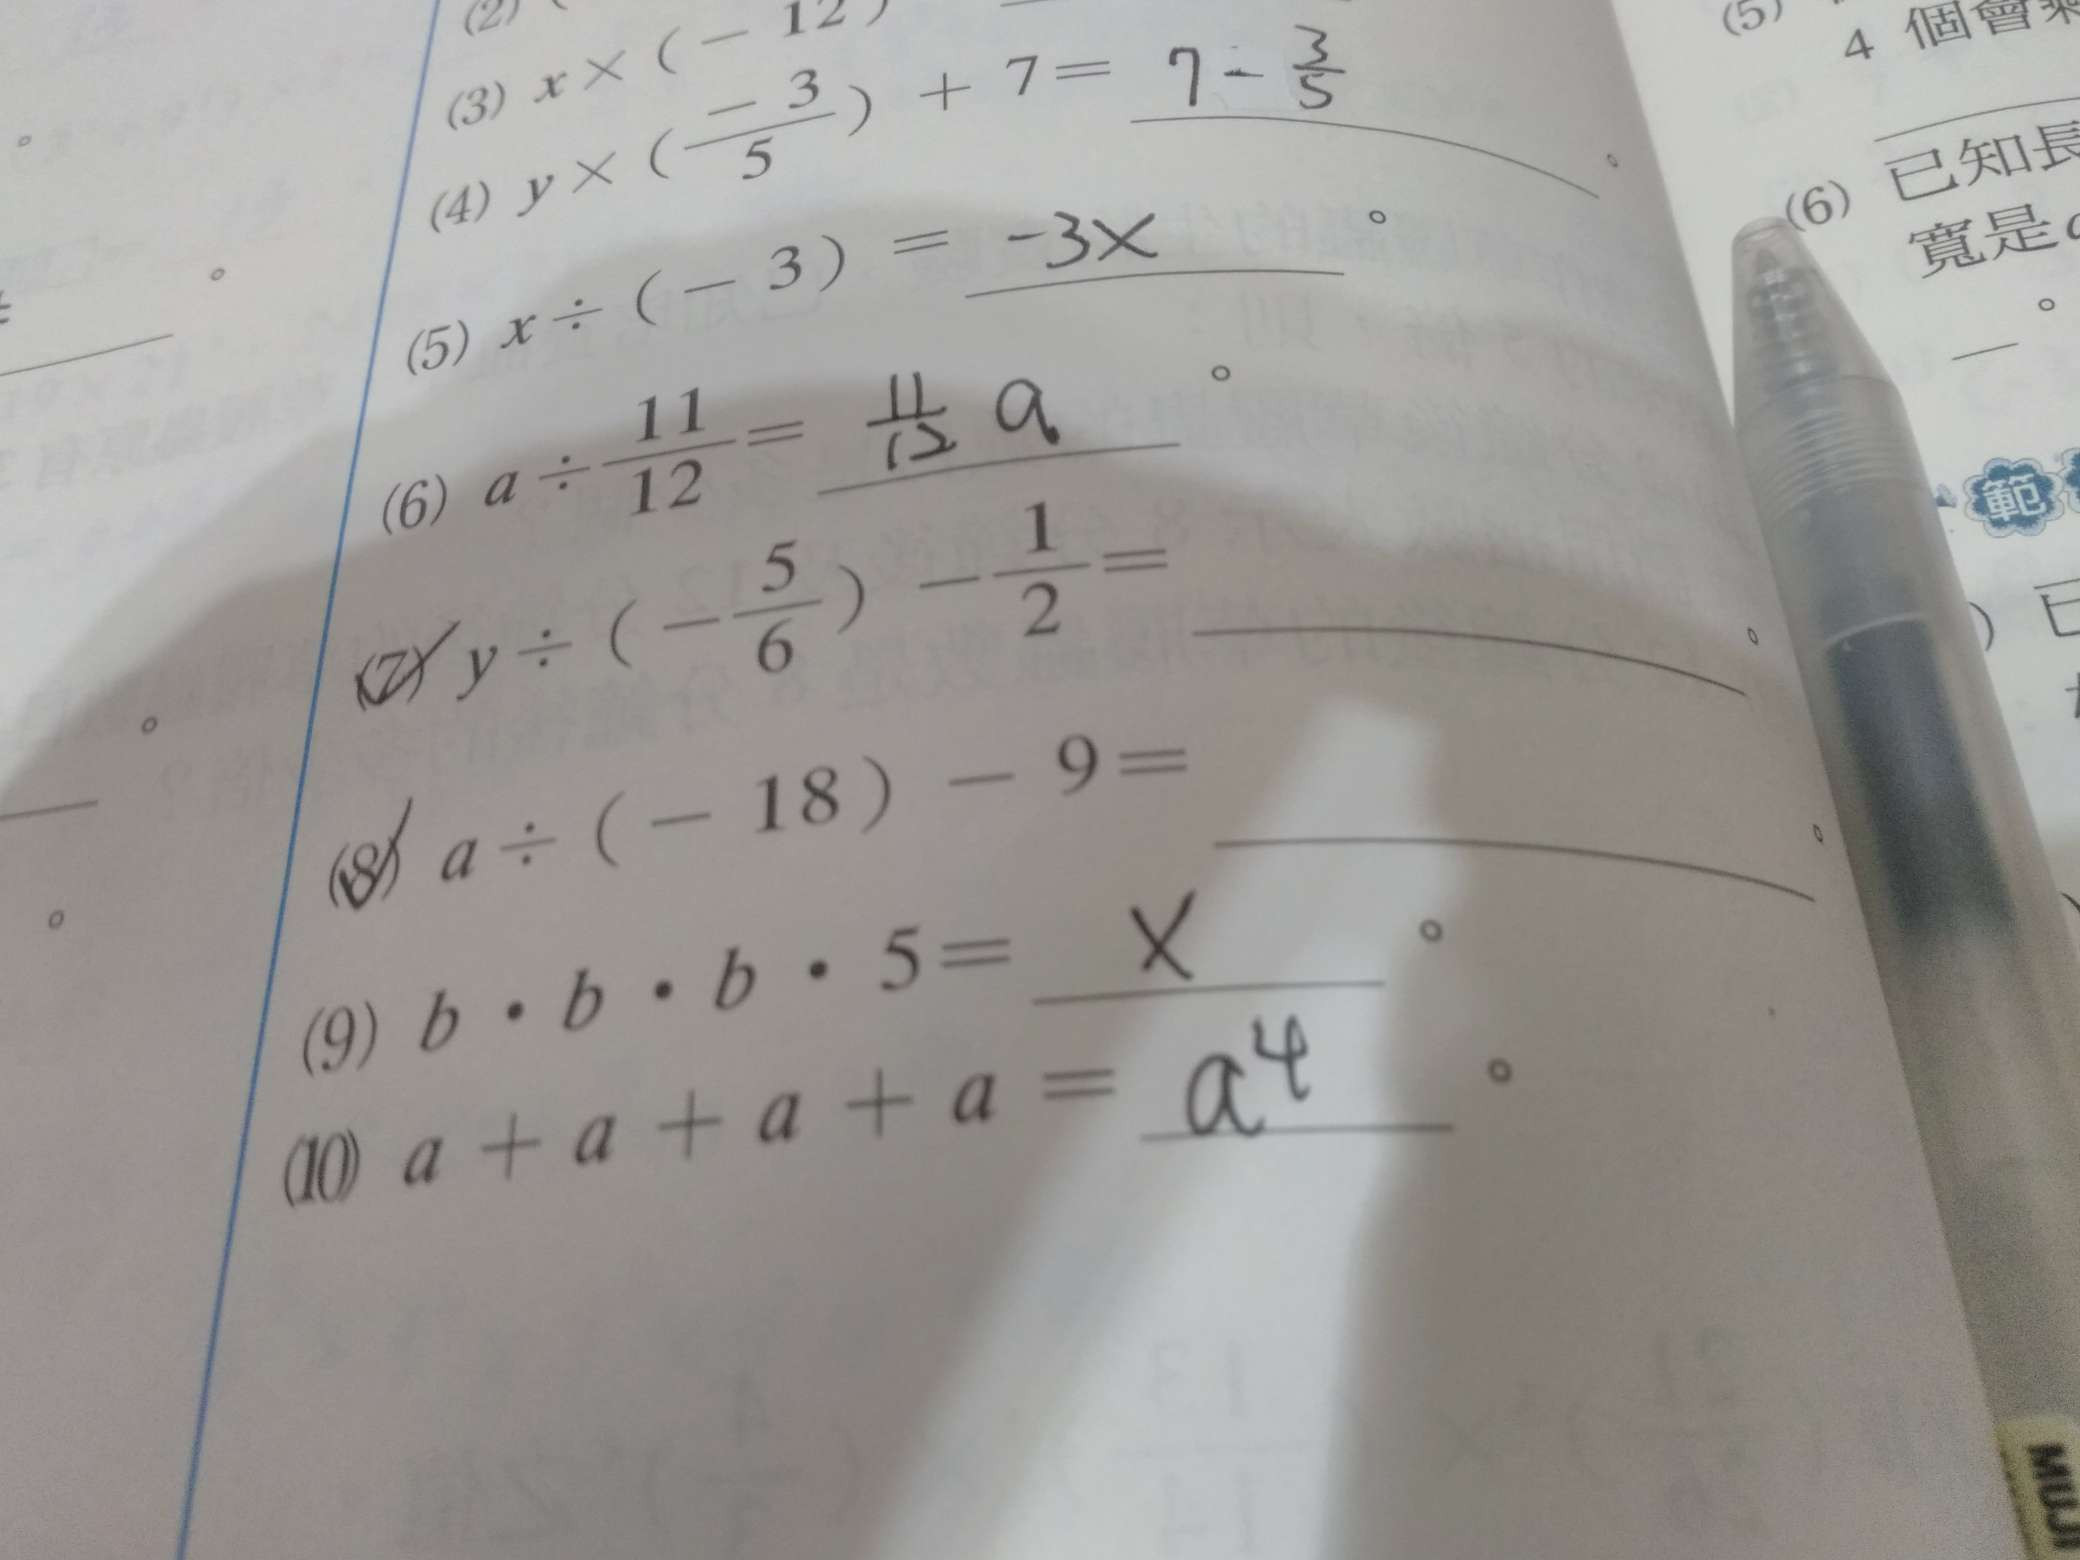 (2)
(3) x × ( - 12 )
(4) y × ( \frac{-3}{5} ) + 7 = 7 - \frac{3}{5} 。
(5) x ÷ ( - 3 ) = -3x 。
(6) a ÷ \frac{11}{12} = \frac{11}{12} a 。
(7) y ÷ ( - \frac{5}{6} ) - \frac{1}{2} = 。
(8) a ÷ ( - 18 ) - 9 = 。
(9) b · b · b · 5 = X 。
(10) a + a + a + a = a⁴ 。
(5)
4 個會剩
(6) 已知長
寬是
。
範
) 已
MUJI